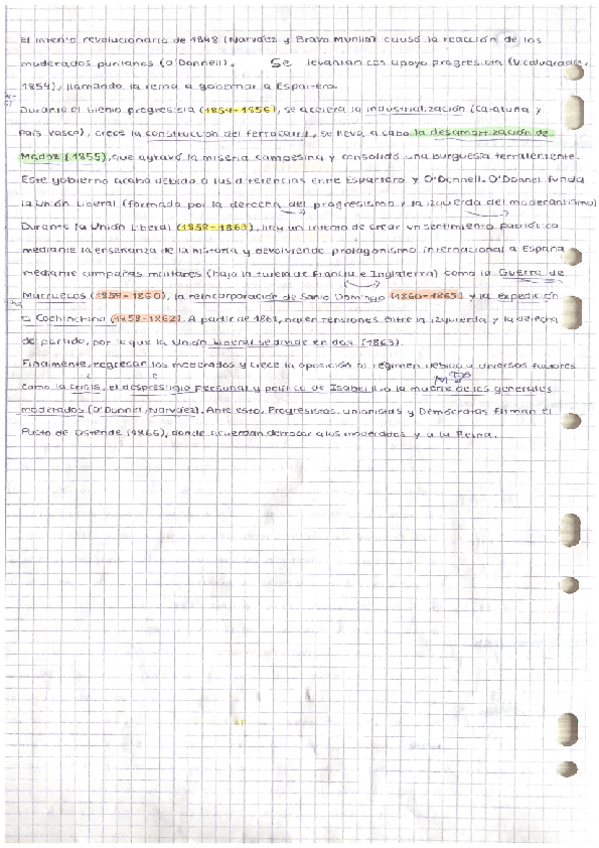 El intento revolucionario de 1848 (Narváez y Bravo Murillo) causó la reacción de los
moderados puritanos (O'Donnell). Se levantan con apoyo progresista (Vicálvarada,
1854), llamando la reina a gobernar a Espartero.
Durante el bienio progresista (1854-1856), se acelera la industrialización (Cataluña y
País Vasco), crece la construcción del ferrocarril, se llevó a cabo la desamortización de
Madoz (1855), que agravó la miseria campesina y consolidó una burguesía terrateniente.
Este gobierno acabó debido a las diferencias entre Espartero y O'Donnell. O'Donnell funda
la Unión Liberal (formado por la derecha del progresismo y la izquierda del moderantismo)
Durante la Unión Liberal (1858-1863), hay un intento de crear un sentimiento patriótico
mediante la enseñanza de la historia y devolviendo protagonismo internacional a España
mediante campañas militares (bajo la tutela de Francia e Inglaterra) como la Guerra de
Marruecos (1859-1860), la reincorporación de Santo Domingo (1860-1865) y la expedición
a Cochinchina (1858-1862). A partir de 1861, nacen tensiones entre la izquierda y la derecha
del partido, por lo que la Unión Liberal se divide en dos (1863).
Finalmente, regresan los moderados y crece la oposición al régimen debido a diversos factores
como la crisis, el desprestigio personal y político de Isabel II o la muerte de los generales
moderados (O'Donnell, Narváez). Ante esto, Progresistas, unionistas y Demócratas firman el
Pacto de Ostende (1866), donde acuerdan derrocar a los moderados y a la Reina.